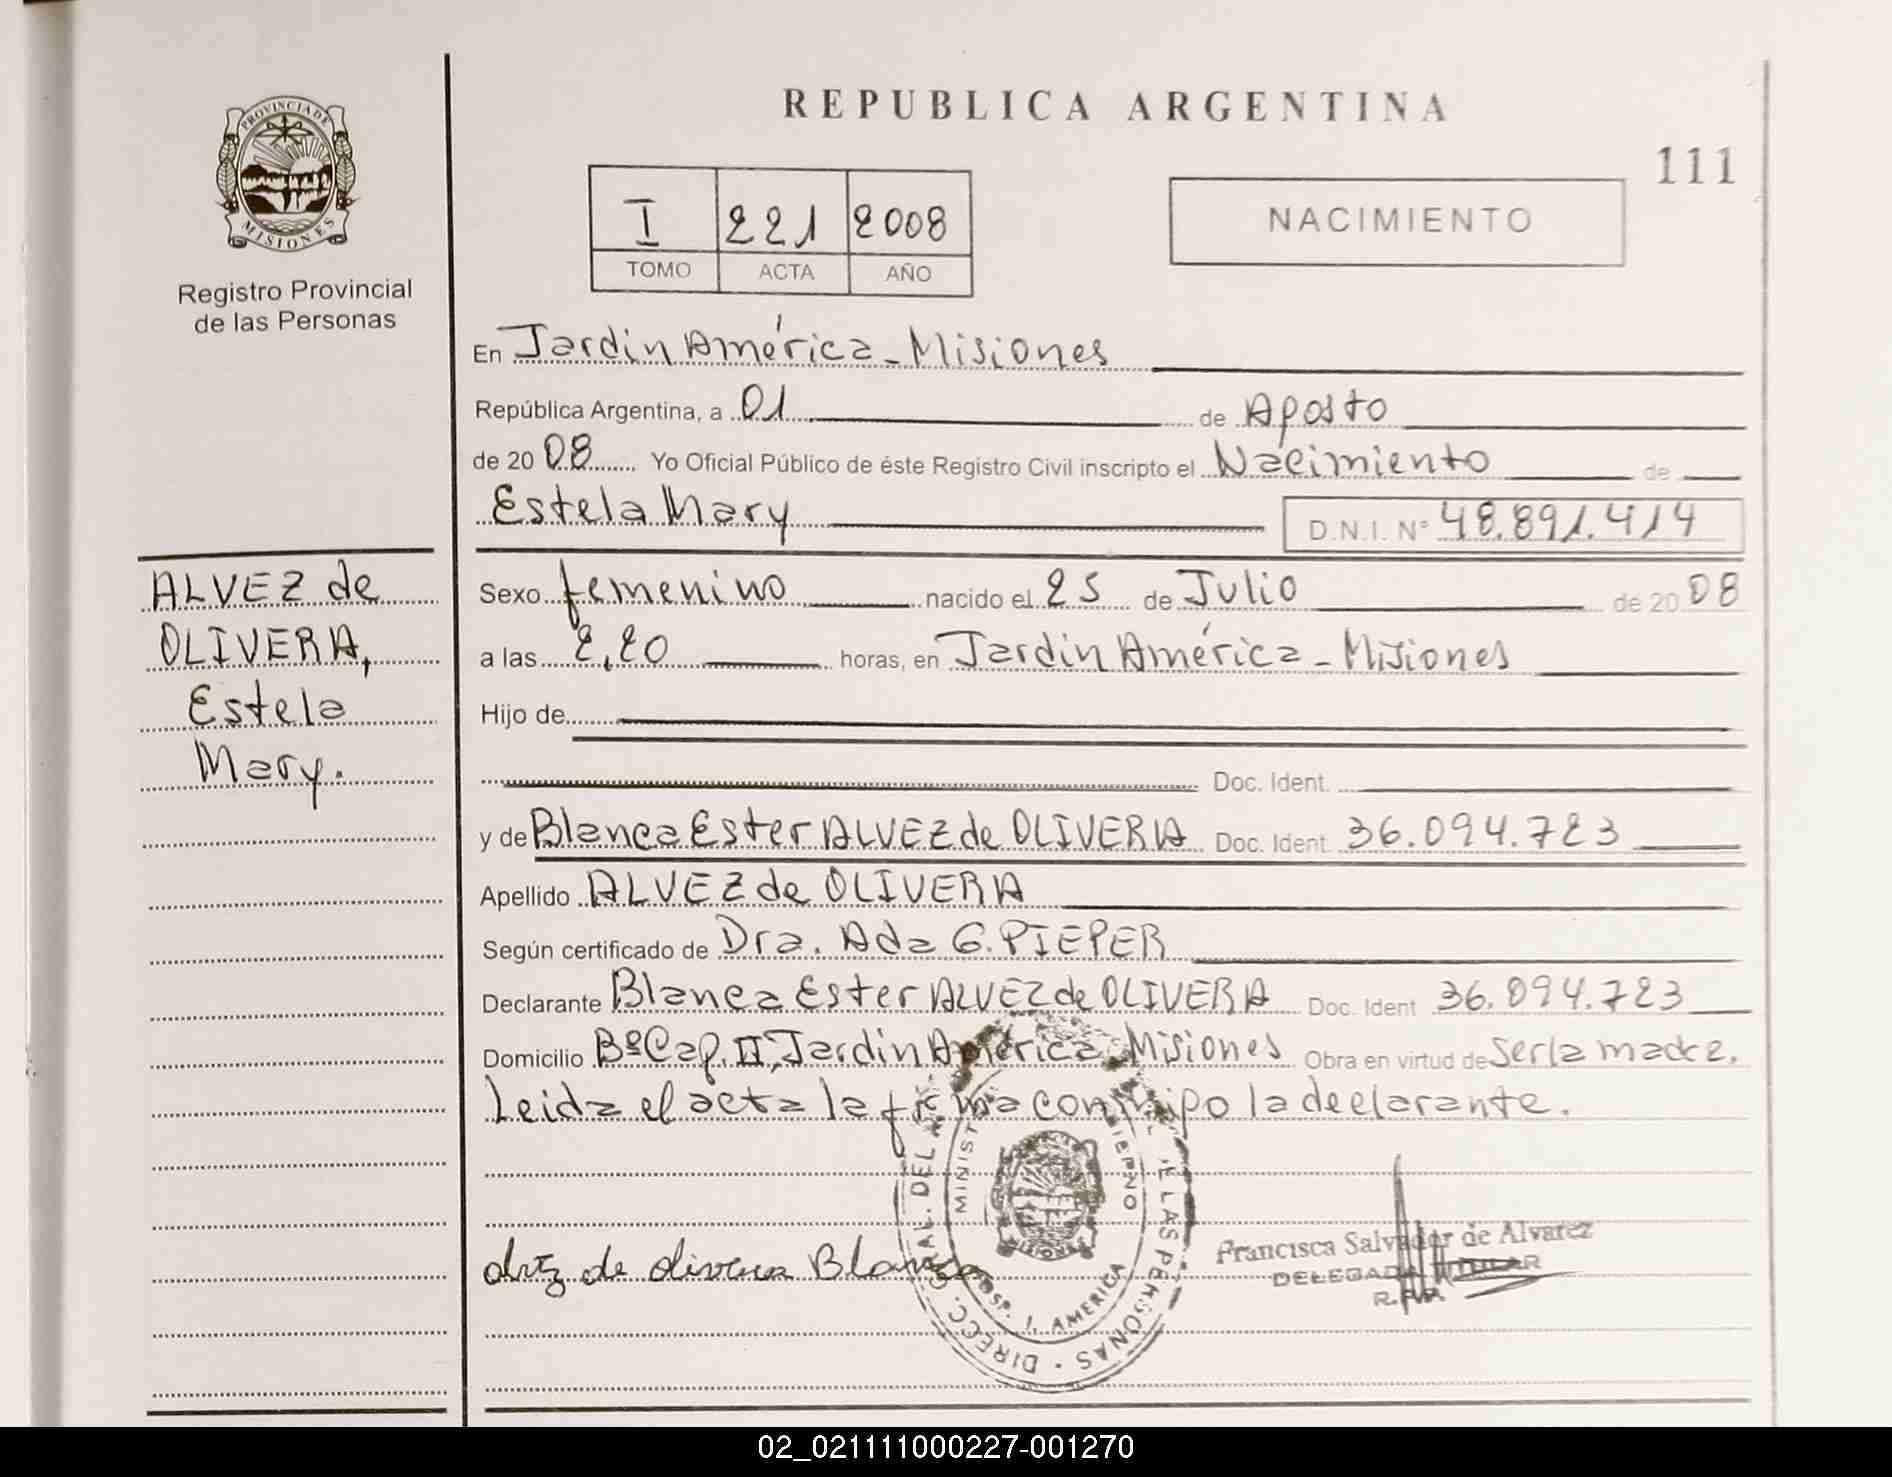 REPUBLICA ARGENTINA
111
PROVINCIA DE
MISIONES
Registro Provincial
de las Personas
I 221 2008
TOMO ACTA AÑO
NACIMIENTO
En Jardín América - Misiones
República Argentina, a 01 de Agosto
de 2008 Yo Oficial Público de éste Registro Civil inscripto el Nacimiento de
Estela Mary D.N.I. Nº 48.891.414
ALVEZ de
OLIVERA,
Estela
Mary.
Sexo femenino nacido el 25 de Julio de 2008
a las 2,20 horas, en Jardín América - Misiones
Hijo de
Doc. Ident.
y de Blanca Ester ALVEZ de OLIVERA Doc. Ident. 36.094.723
Apellido ALVEZ de OLIVERA
Según certificado de Dra. Ada G. PIEPER
Declarante Blanca Ester ALVEZ de OLIVERA Doc. Ident 36.094.723
Domicilio Bº Cap. II, Jardín América - Misiones Obra en virtud de Ser la madre.
Leida el acta la firma conmigo la declarante.
de olivera Blanca
Francisca Salvador de Alvarez
DELEGADA TITULAR
R.P.P.
DIRECC. GRAL. DEL LAS PERSONAS
HOSP. J. AMERICA
02_021111000227-001270